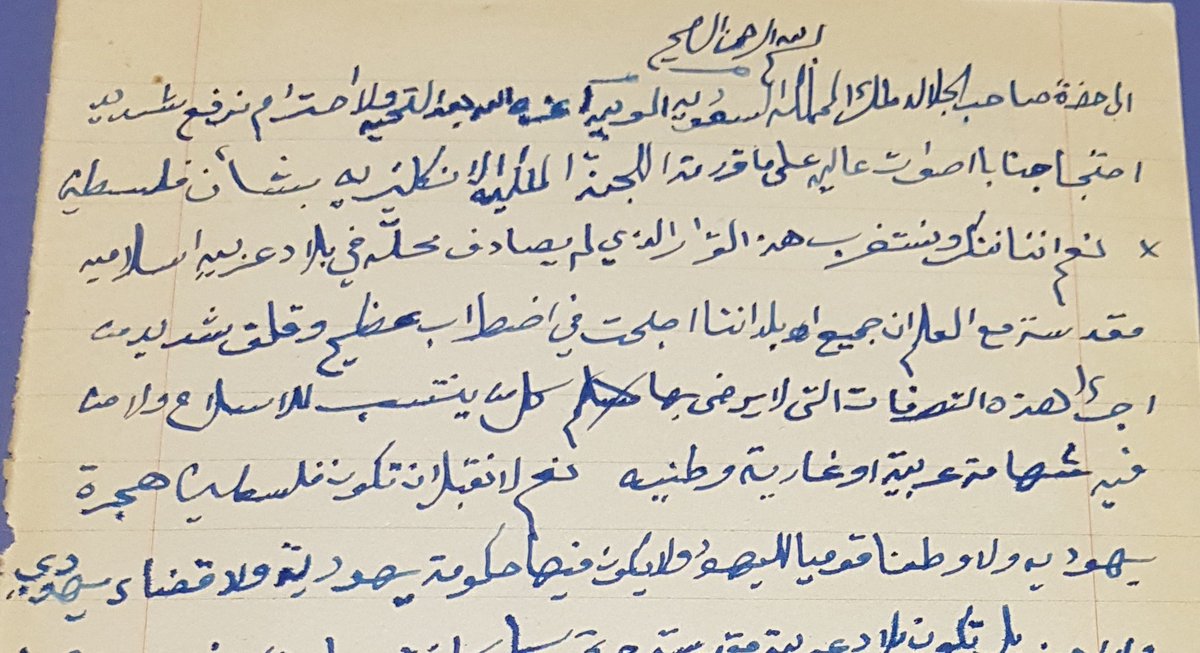 بسم الله الرحمن الرحيم
الى حضرة صاحب الجلاله ملك المملكه السعوديه العربيه اعزه الله بعد التحيه والاحترام نرفع شديد
احتجاجنا باصوات عاليه على ما قررته اللجنة الملكيه الانكليزيه بشأن فلسطين
× نعم اننا ننكر ونستغرب هذ القرار الذي لم يصادف محلّه في بلاد عربيه اسلاميه
مقدسة مع العلم ان جميع بلداننا اصبحت في اضطراب عظيم وقلق شديد من
اجراء هذه التصرفات التي لا يرضى بها كل من ينتسب للاسلام ولا من
فيه شهامة عربية او غارية وطنيه نعم لا نقبل ان تكون فلسطين هجرة
يهوديه ولا وطنا قوميا لليهود ولا يكون فيها حكومة يهودية ولا قضاء يهودي
بل تكون بلاد عربية مقدسة حرة